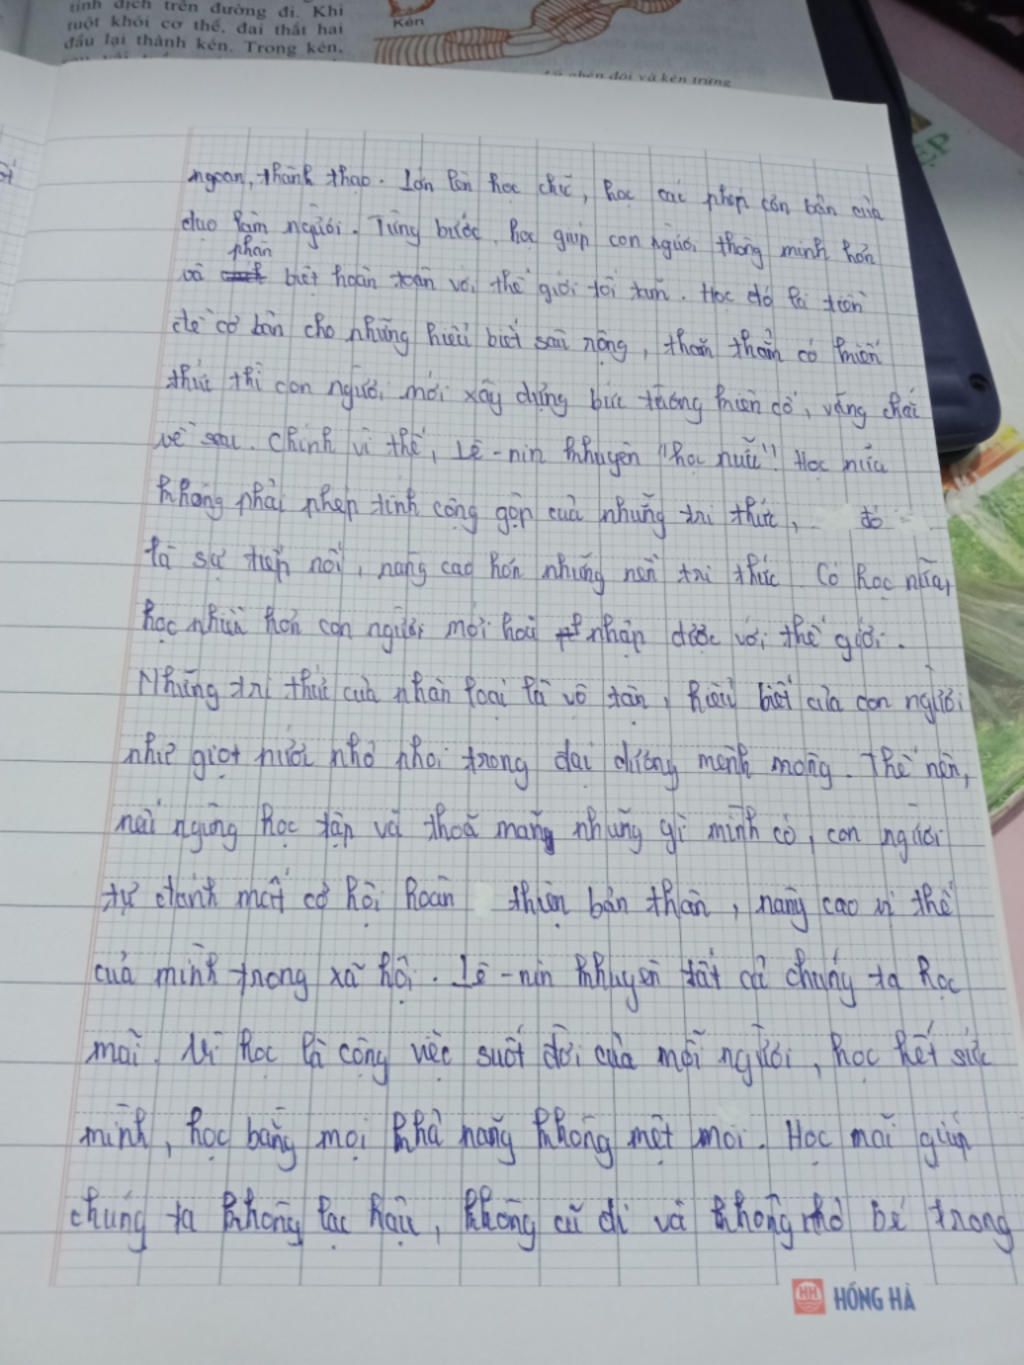 tinh dịch trên đường đi. Khi
tuột khỏi cơ thể, đai thắt hai
đầu lại thành kén. Trong kén,
Kén
đôi và kén trứng
ngoan, thành thạo. Lớn lên học chữ, học các phép căn bản của
đạo làm người. Từng bước, học giúp con người thông minh hơn
phân
và biệt hoàn toàn với thế giới tối tăm. Học đó là tiền
đề cơ bản cho những hiểu biết sâu rộng, có kiến
thức thì con người mới xây dựng bức tường kiên cố, vững chãi
về sau. Chính vì thế, Lê-nin khuyên "học nữa". Học nữa
không phải phép tính cộng gộp của những tri thức, đó
là sự tiếp nối, nâng cao hơn những nền tri thức. Có học nữa,
học nhiều hơn con người mới hoà nhập được với thế giới.
Những tri thức của nhân loại là vô tận, hiểu biết của con người
như giọt nước nhỏ nhoi trong đại dương mênh mông. Thế nên,
nếu ngừng học tập và thoả mãn những gì mình có, con người
tự đánh mất cơ hội hoàn thiện bản thân, nâng cao vị thế
của mình trong xã hội. Lê-nin khuyên tất cả chúng ta học
mãi. Vì học là công việc suốt đời của mỗi người, học hết sức
mình, học bằng mọi khả năng không mệt mỏi. Học mãi giúp
chúng ta không lạc hậu, không cũ đi và không nhỏ bé trong
HỒNG HÀ